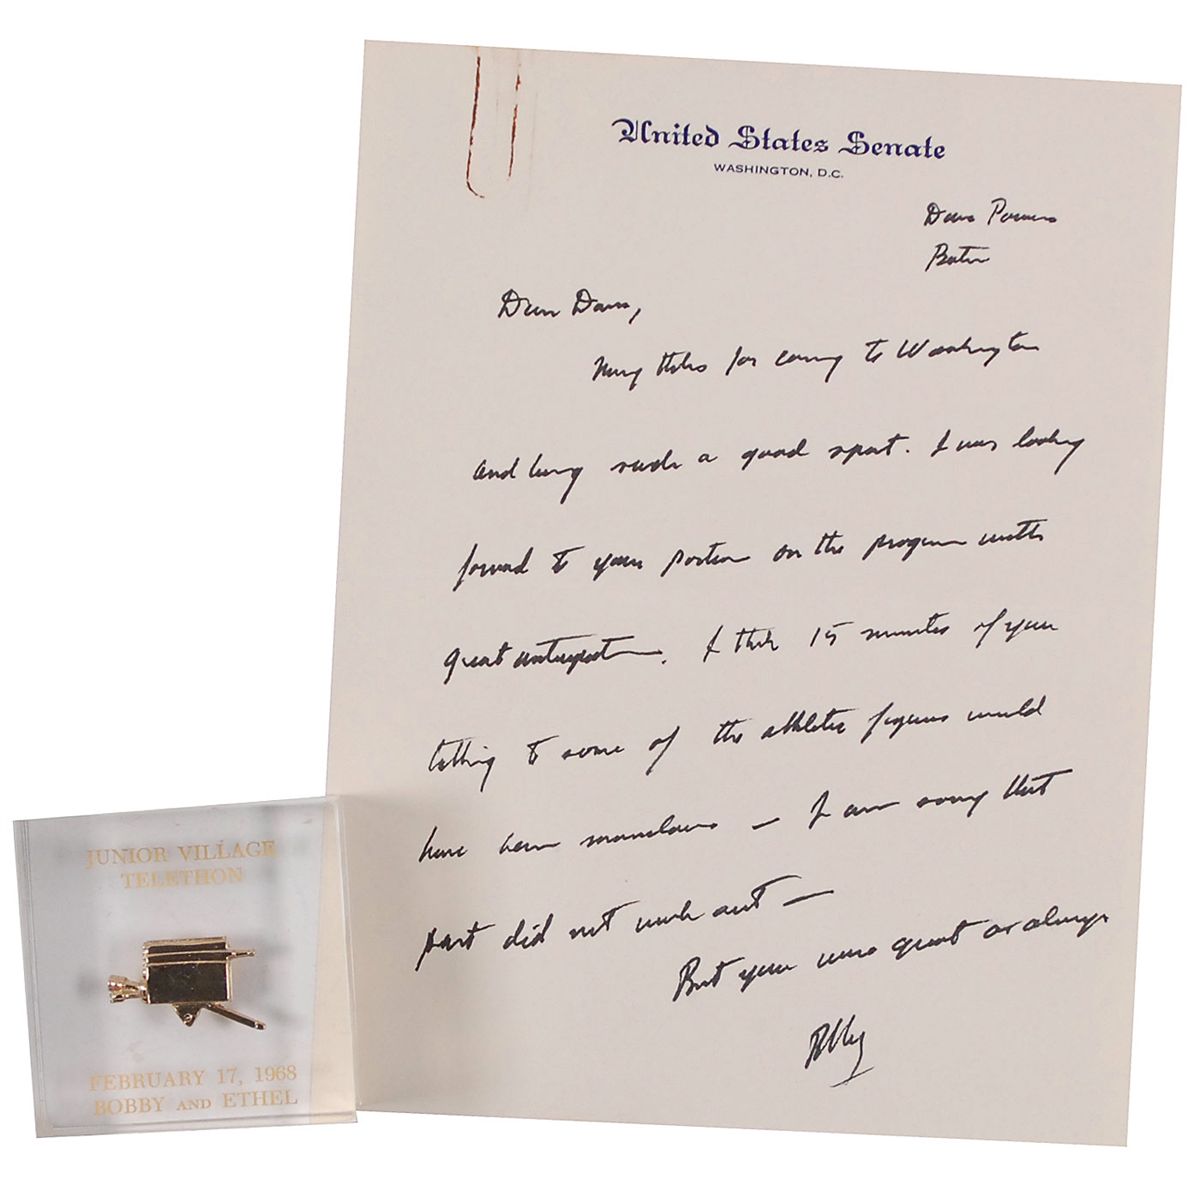 United States Senate
WASHINGTON, D.C.
Dave Powers
Boston
Dear Dave,
Many thks for coming to Washington
and being such a good sport. I was looking
forward to your portion on the program with
great anticipation. I think 15 minutes of your
talking to some of the athletic figures would
have been marvelous — I am sorry that
part did not work out —
But you were great as always
Bobby
JUNIOR VILLAGE
TELETHON
FEBRUARY 17, 1968
BOBBY AND ETHEL